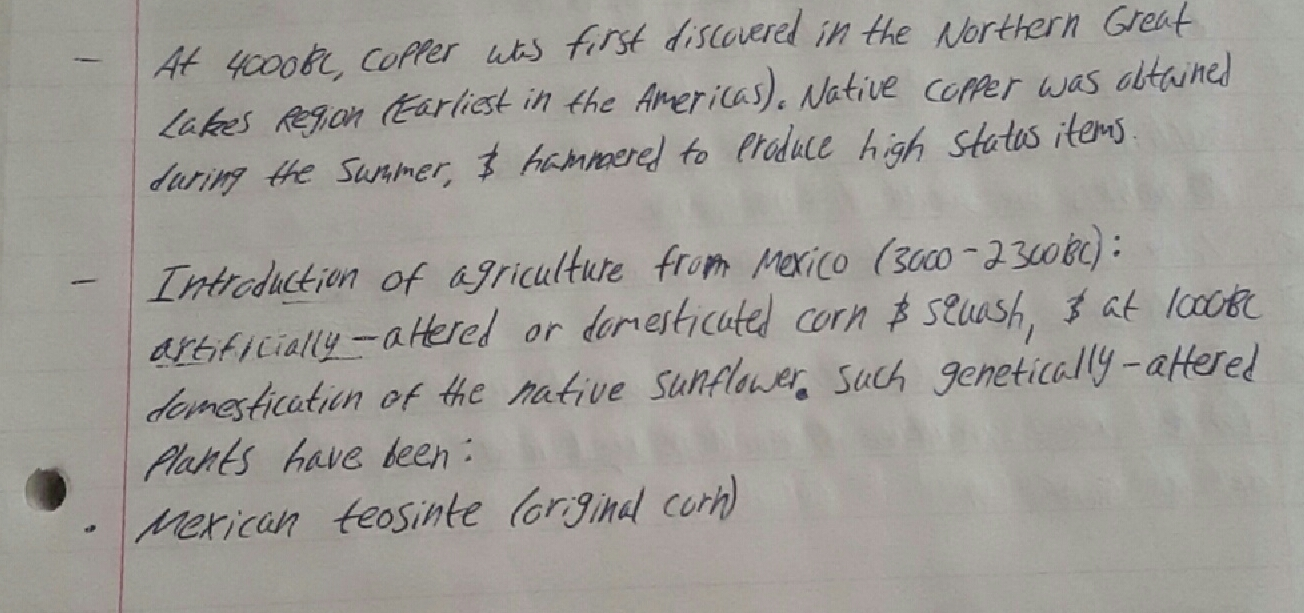 - At 4000BC, copper was first discovered in the Northern Great
Lakes Region (Earliest in the Americas). Native copper was obtained
during the Summer, & hammered to produce high status items.
- Introduction of agriculture from Mexico (3000-2300BC):
artificially-altered or domesticated corn & squash, & at 1000BC
domestication of the native sunflower. Such genetically-altered
Plants have been:
. Mexican teosinte (original corn)